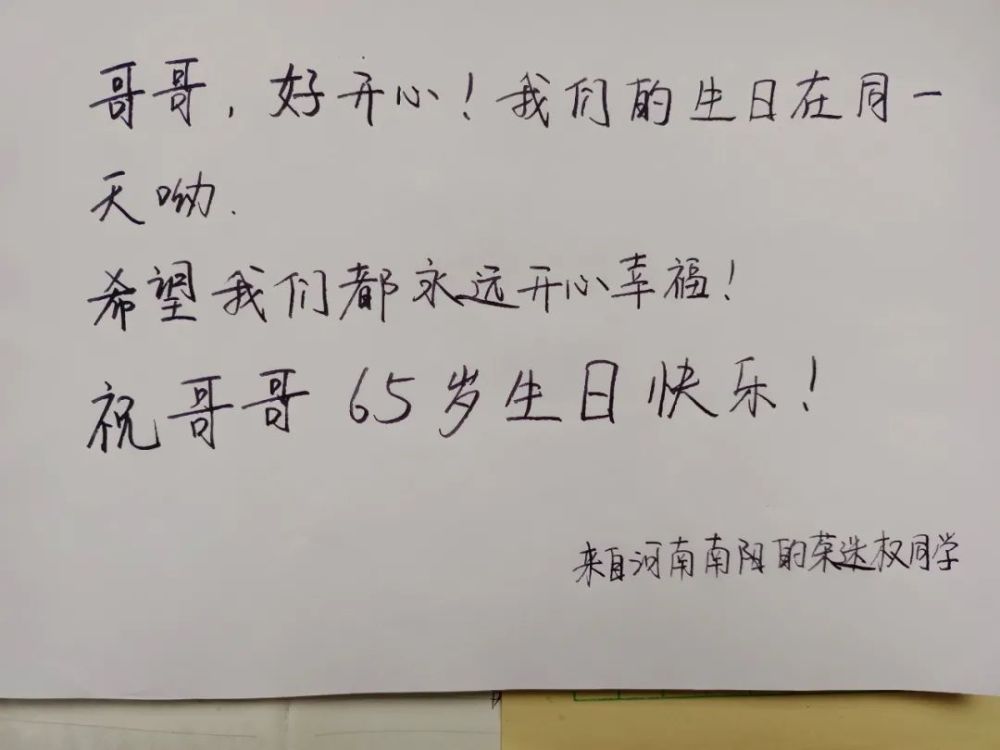 哥哥，好开心！我们的生日在同一
天呦.
希望我们都永远开心幸福！
祝哥哥65岁生日快乐！
来自河南南阳的荣选权同学